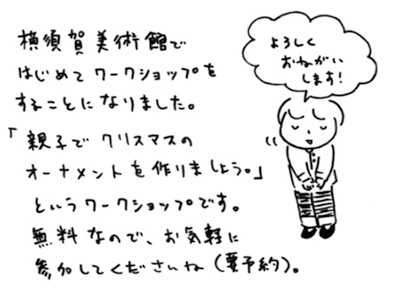 横須賀美術館で
はじめてワークショップを
することになりました。
「親子でクリスマスの
オーナメントを作りましょう。」
というワークショップです。
無料なので、お気軽に
参加してくださいね(要予約)。
よろしく
おねがい
します!